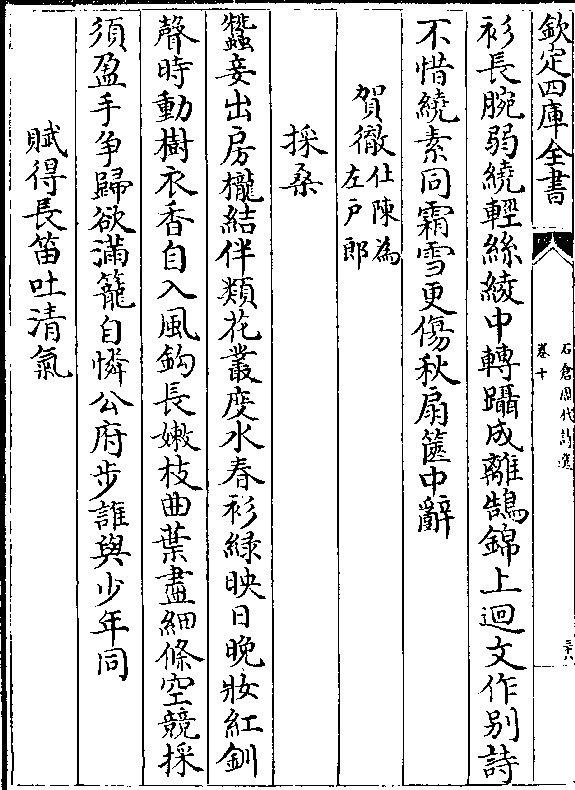 欽定四庫全書
石倉歷代詩選
卷十
三十八
衫長腕弱繞輕絲綾中轉躡成離鵠錦上迴文作別詩
不惜繞素同霜雪更傷秋扇篋中辭
賀徹仕陳為
左戸郎
採桑
蠶妾出房櫳結伴類花叢度水春衫緑映日晚妝紅釧
聲時動樹衣香自入風鈎長嫩枝曲葉盡細條空競採
須盈手争歸欲滿籠自憐公府步誰與少年同
賦得長笛吐清氣